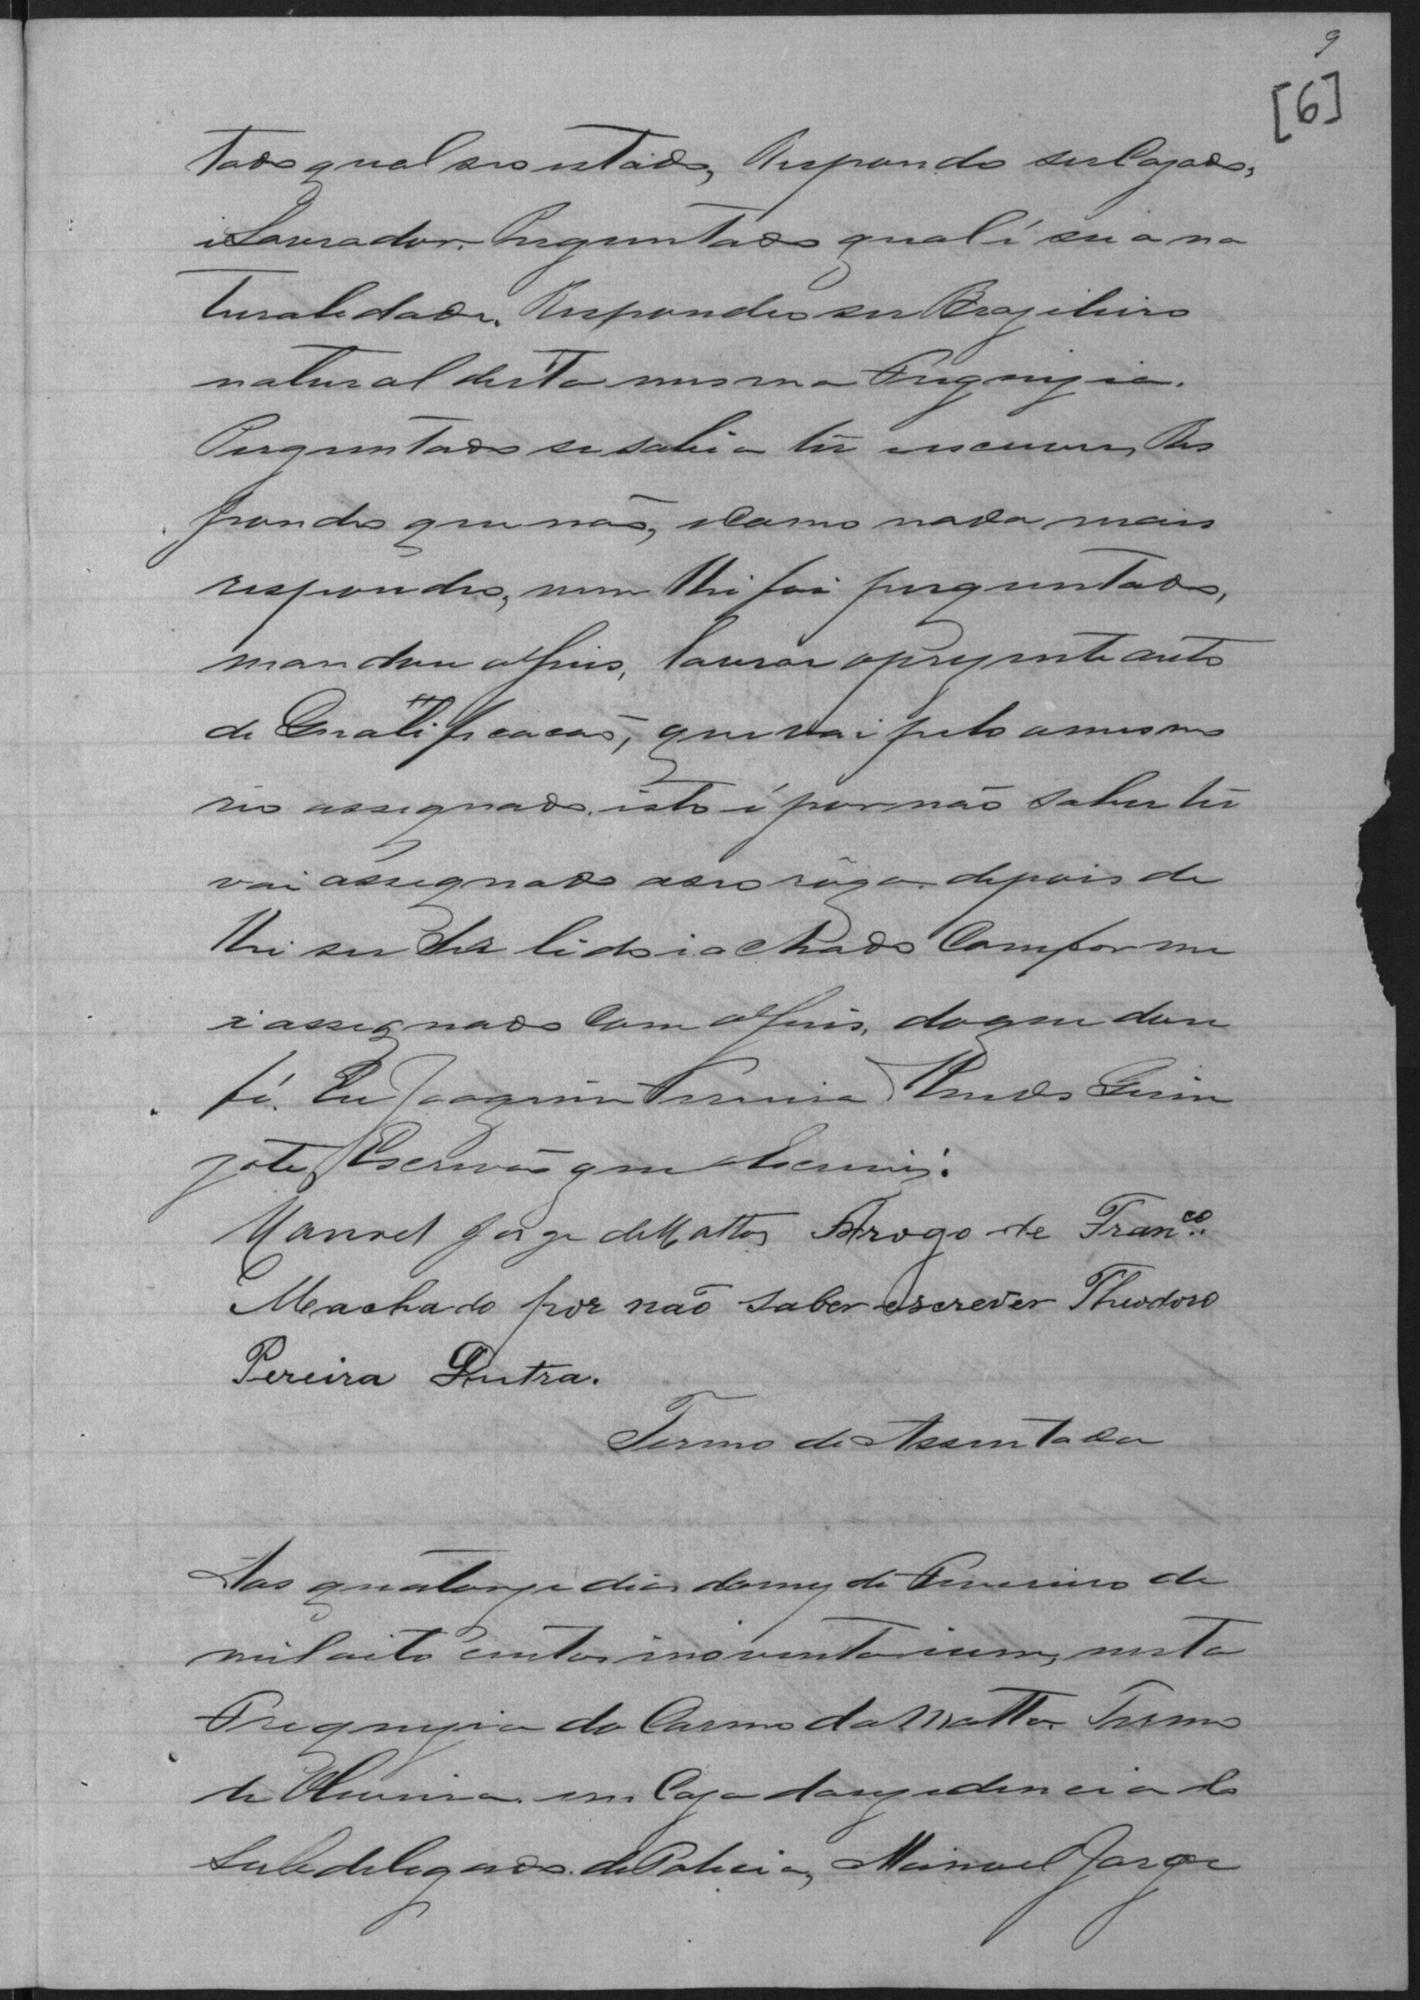 9
[6]
tado qual seo estado, Respondeo ser Cazado,
i Lavrador. Perguntado qual é sua na
turalidade. Respondeo ser Brazileiro
natural desta mesma Freguizia.
Perguntado se sabia ler escrever, Res
pondeo que não, e Como nada mais
respondeo, nem lhe foi perguntado,
mandou o Juis, lavrar o prezente auto
de Qualificacão, que vai pelo o mesmo
reo assegnado. isto é por não saber ler
vai assegnado a seo rôgo. depois de
lhe ser lido i achado Comforme
i assegnado Com o Juis, do que dou
fé. Eu Joaquim Ferreira
Escrivão que o escrevi.
Manoel Jorge de Mattos Arogo de Franco.
Machado por não saber escrever Theodoro
Pereira Dutra.
Termo de Assentada
Aos quatorze dias do mez de Fevereiro de
mil oito centos i noventa i um, nesta
Freguizia do Carmo da Matta Termo
de Oliveira em Caza da rezidencia do
Subdelegado de Policia, Manoel Jorge